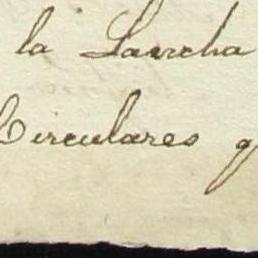 la Lancha
Circulares q